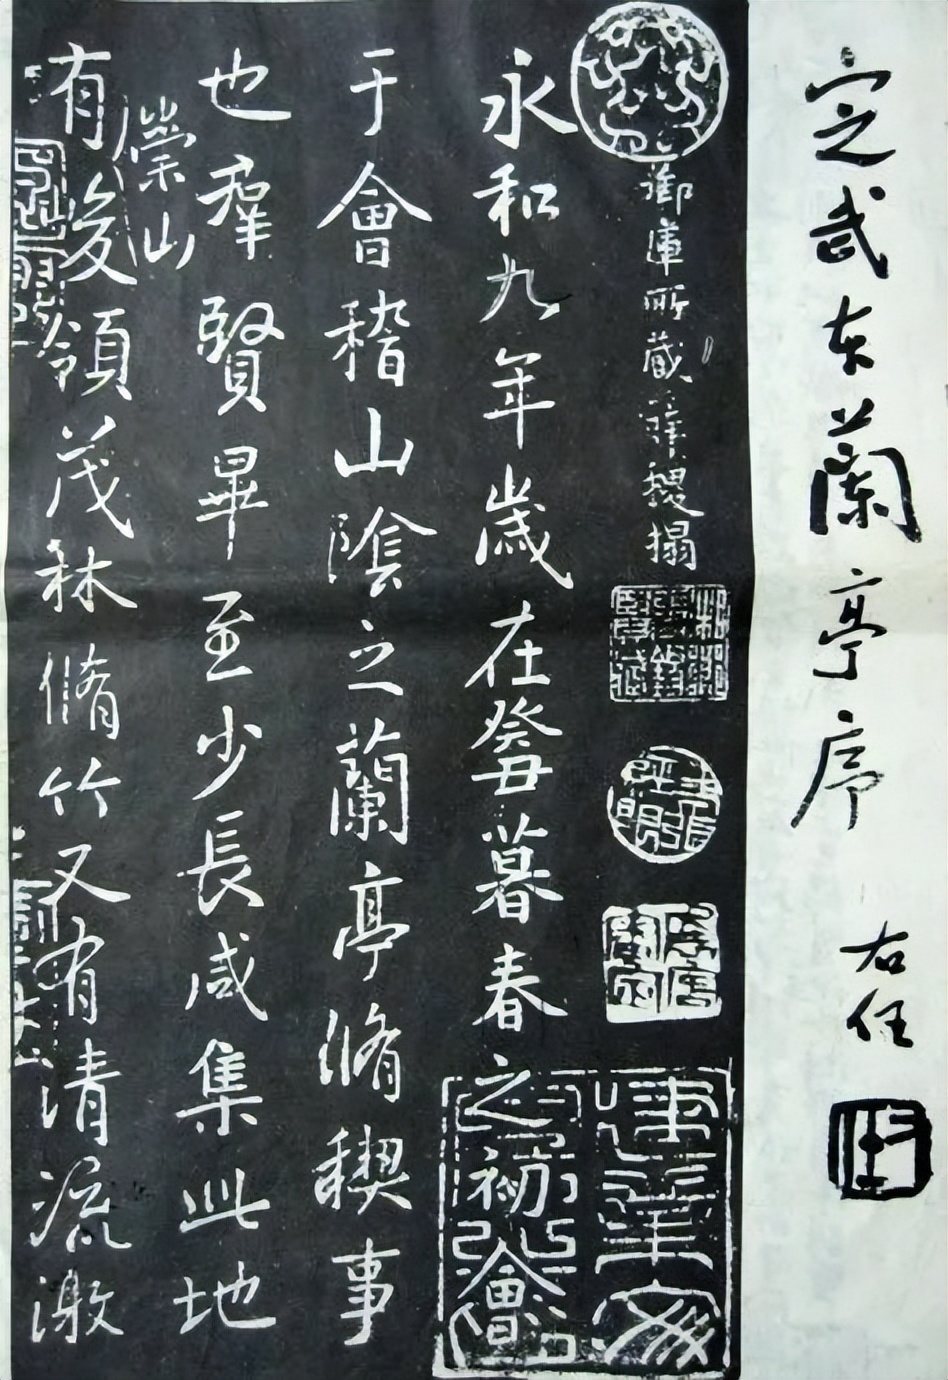 定武本蘭亭序
右任
御庫所藏薛稷搨
永和九年歲在癸丑暮春之初會
于會稽山陰之蘭亭脩稧事
也羣賢畢至少長咸集此地
崇山
有峻領茂林脩竹又有清流激